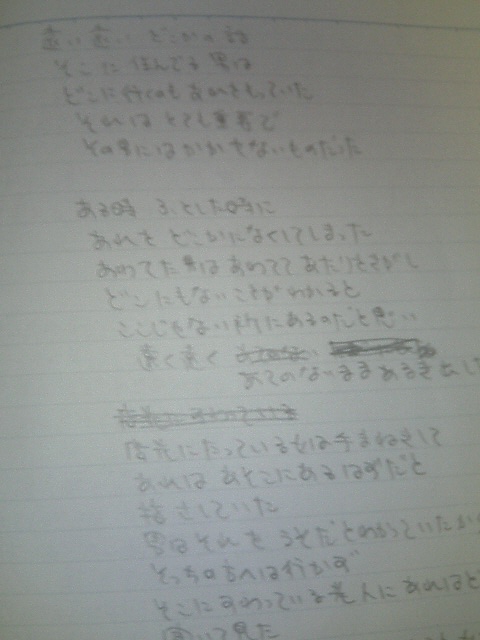 遠い遠い どこかの話
そこに住んでる男は
どこに行くのもあれをもっていた
それはとても重要で
その男にはかかせないものだった
ある時 ふとした時に
あれをどこかになくしてしまった
あわてた男はあわててあたりをさがし
どこにもないことがわかると
ここじゃない所にあるのだと思い
遠く遠く
あてのないままあるきだし
街先にたっている女は手まねきして
あれはあそこにあるはずだと
指さしていた
男はそれをうそだとわかっていたか
そっちの方へは行かず
そこにすわっている老人にあれはど
聞いて見た